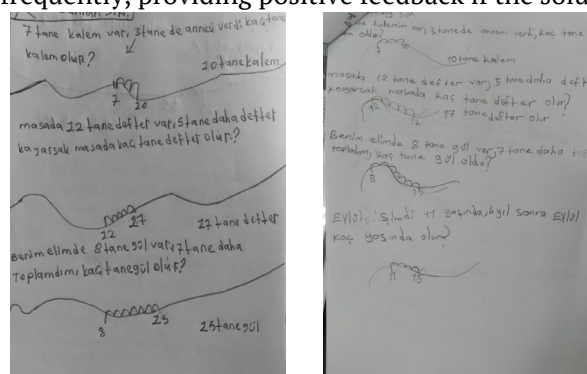 frequently, providing positive feedback if the solu
7 tane kalem var, 3 tane de annesi verdi kaç tane
kalem olur?
20 tane kalem
7 20
masada 22 tane defter var, 5 tane daha defter
koyarsak masada kaç tane defter olur?
22 27
27 tane defter
Benim elimde 8 tane gül var, 7 tane daha
topladım, kaç tane gül olur?
8 25
25 tane gül
kalemim var, 3 tane de annem verdi, kaç tane
oldu?
10 tane kalem
masada 12 tane defter var, 5 tane daha deft
koyarsak masada kaç tane defter olur?
12 17
17 tane defter olur
Benim elimde 8 tane gül var, 7 tane daha
topladım, kaç tane gül oldu?
8 15
Eylül şimdi 11 yaşında, 4 yıl sonra Eylül
kaç yaşında olur?
11 15